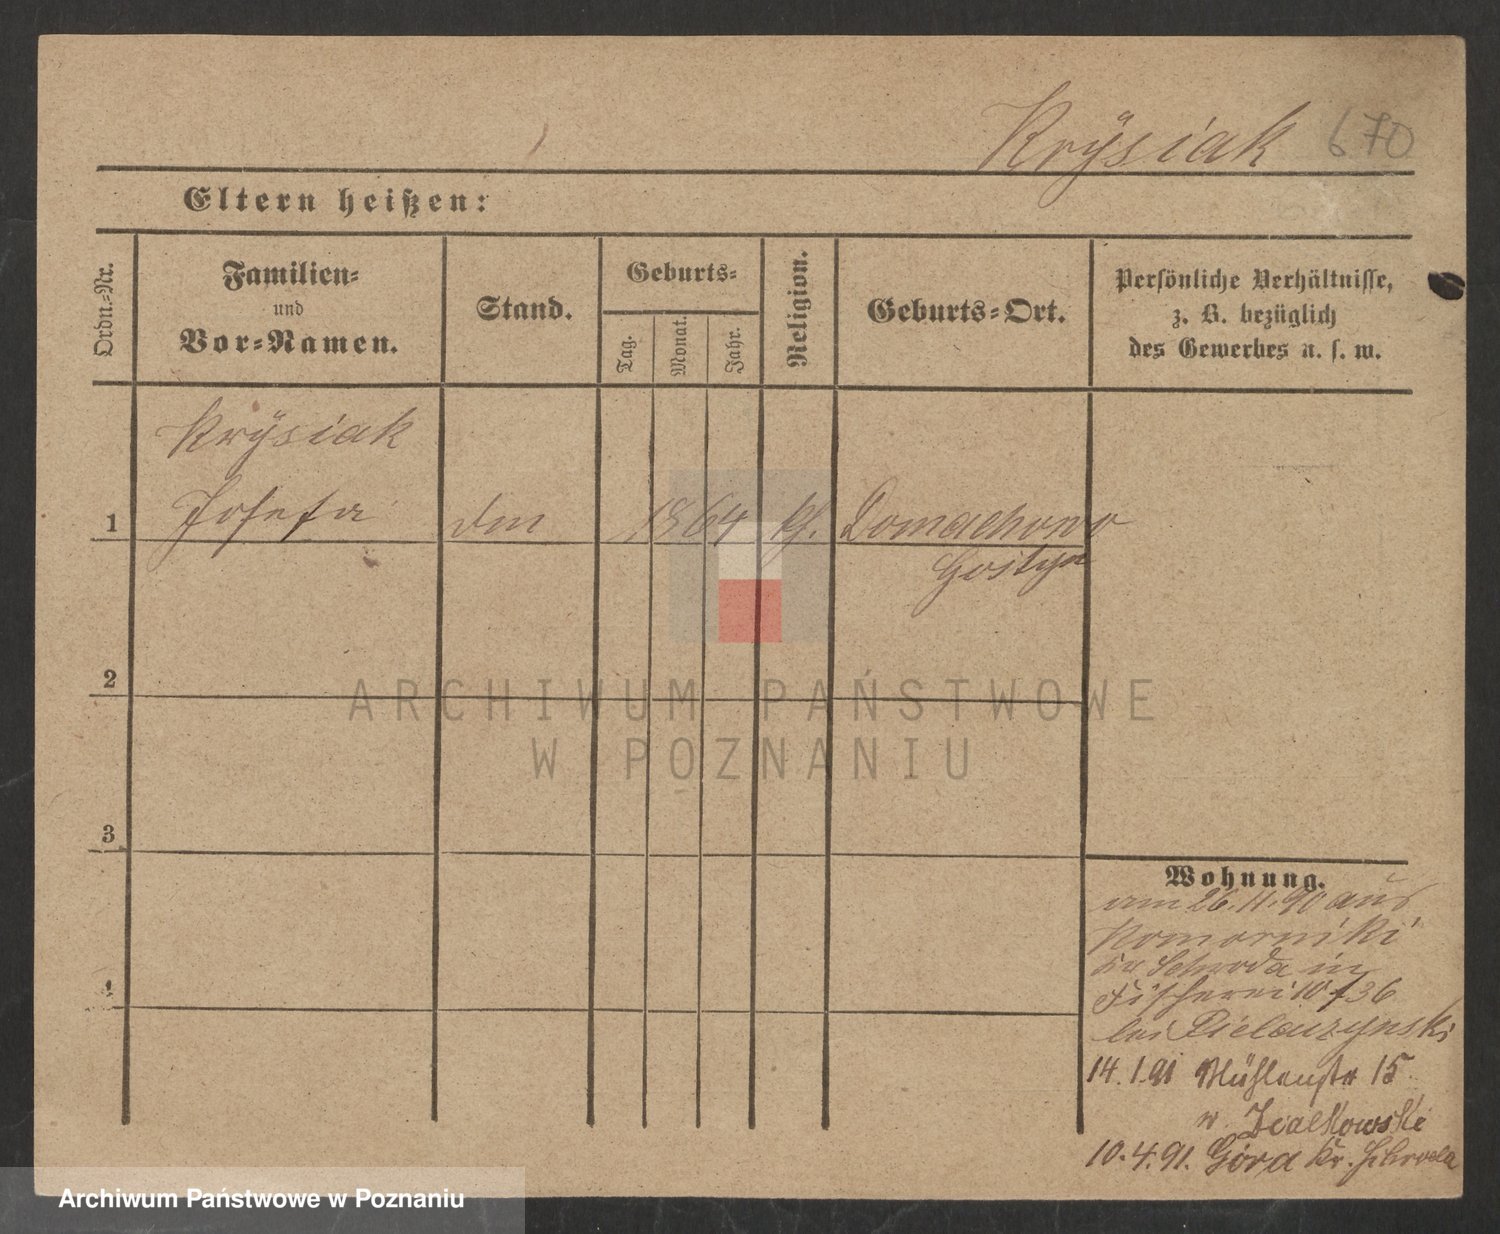 Krÿsiak 670
Eltern heißen:
Ordn.=Nr.
Familien=
und
Vor=Namen.
Stand.
Geburts=
Tag.
Monat.
Jahr.
Religion.
Geburts=Ort.
Persönliche Verhältnisse,
z. B. bezüglich
des Gewerbes u. s. w.
Krÿsiak
1 Josefa 1864 Domachowo
Gostyn
2
3
4
Wohnung.
am 26.11.90 aus
Komorniki
Kr Schroda in
Fischerei
bei
14.1.91 Mühlenstr 15
10.4.91. Góra Kr. Schroda
ARCHIWUM PAŃSTWOWE
W POZNANIU
Archiwum Państwowe w Poznaniu